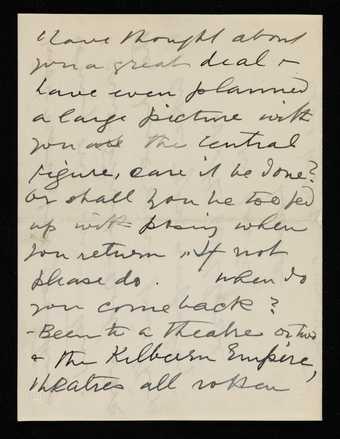 have thought about
you a great deal &
have even planned
a large picture with
you as the central
figure, care it be done?
Or shall you be too fed
up with posing when
you return, If not
please do. when do
you come back?
- Been to a theatre or two
& the Kilburn Empire,
theatres all rotten